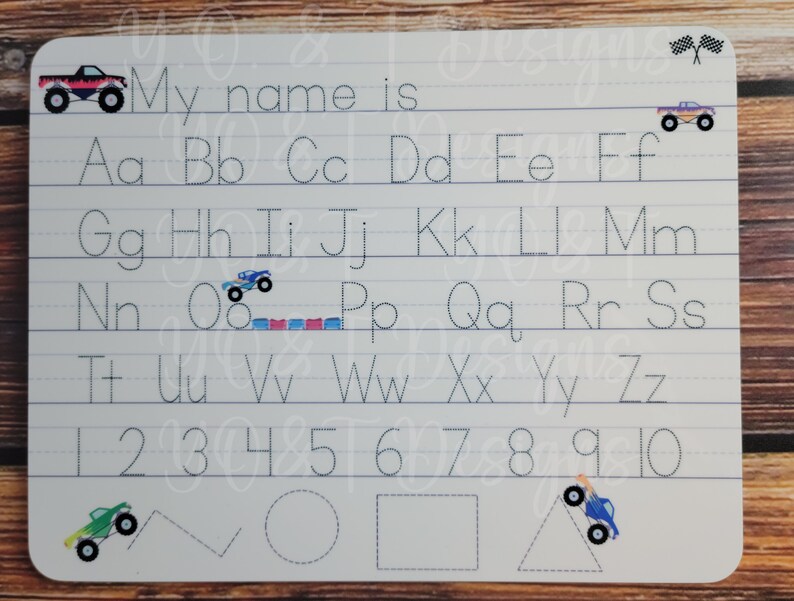 My name is
Aa Bb Cc Dd Ee Ff
Gg Hh Ii Jj Kk Ll Mm
Nn Oo Pp Qq Rr Ss
Tt Uu Vv Ww Xx Yy Zz
1 2 3 4 5 6 7 8 9 10
Y.O & T Designs
YO & T Designs
YO & T
YO & T Designs
YO & T Designs